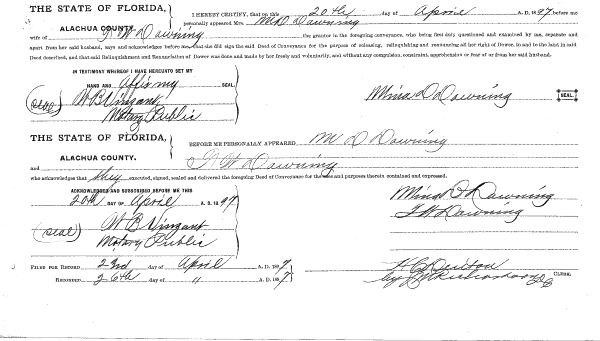 THE STATE OF FLORIDA,
ALACHUA COUNTY.
I HEREBY CERTIFY, that on this 20th day of April A. D. 1897 before me
personally appeared M D Downing
wife of F W Downing the grantor in the foregoing conveyance, who being first duly questioned and examined by me, separate and
apart from her said husband, says and acknowledges before me, that she did sign the said Deed of Conveyance for the purpose of releasing, relinquishing and renouncing all her right of Dower, in and to the land in said
Deed described, and that said Relinquishment and Renunciation of Dower was done and made by her freely and voluntarily, and without any compulsion, constraint, apprehension or fear of or from her said husband.
IN TESTIMONY WHEREOF I HAVE HEREUNTO SET MY
HAND AND Affix my SEAL
(seal) W B Vinzant
Notary Public
Mina D Downing SEAL
THE STATE OF FLORIDA,
ALACHUA COUNTY.
BEFORE ME PERSONALLY APPEARED M D Downing
and F W Downing
who acknowledge that they executed, signed, sealed and delivered the foregoing Deed of Conveyance for the uses and purposes therein contained and expressed.
ACKNOWLEDGED AND SUBSCRIBED BEFORE ME THIS
20th DAY OF April A. D. 1897
(seal) W B Vinzant
Notary Public
Mina D Downing
F W Downing
FILED FOR RECORD 23rd day of April A. D. 1897
RECORDED 26th day of " A. D. 1897
H C Denton CLERK.
by Richardson D C